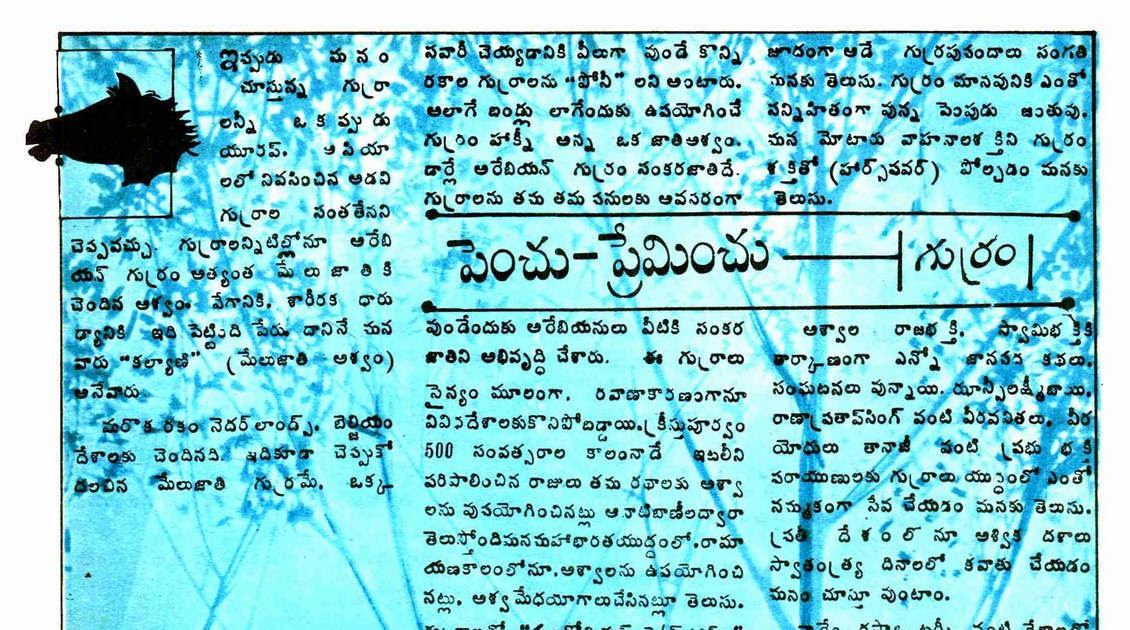 ఇప్పుడు మనం
చూస్తున్న గుర్రా
లన్నీ ఒకప్పుడు
యూరప్, ఆసియా
లలో నివసించిన అడవి
గుర్రాల సంతతేనని
చెప్పవచ్చు. గుర్రాలన్నిటిల్లోనూ అరేబి
యన్ గుర్రం అత్యంత మేలు జాతికి
చెందిన అశ్వం. వేగానికి, శారీరక దారు
ఢ్యానికి ఇది పెట్టింది పేరు. దానినే మన
వారు "కల్యాణి" (మేలుజాతి అశ్వం)
అనేవారు.
మరొక రకం నెదర్లాండ్స్, బెల్జియం
దేశాలకు చెందినది. ఇదికూడా చెప్పుకో
దలచిన మేలుజాతి గుర్రమే. ఒక్క
సవారీ చెయ్యడానికి వీలుగా వుండే కొన్ని
రకాల గుర్రాలను "పోనీ" లని అంటారు.
అలాగే బండ్లు లాగేందుకు ఉపయోగించే
గుర్రం హాక్నీ అన్న ఒక జాతిఅశ్వం.
డార్లే అరేబియన్ గుర్రం సంకరజాతిదే.
గుర్రాలను తమ తమ పనులకు అవసరంగా
జూదంగా ఆడే గుర్రపుపందాలు సంగతి
మనకు తెలుసు. గుర్రం మానవునికి ఎంతో
సన్నిహితంగా వున్న పెంపుడు జంతువు.
మన మోటారు వాహనాలశక్తిని గుర్రం
శక్తితో (హార్స్‌పవర్) పోల్చడం మనకు
తెలుసు.
పెంచు-ప్రేమించు గుర్రం
వుండేందుకు అరేబియనులు వీటికి సంకర
జాతిని అభివృద్ధి చేశారు. ఈ గుర్రాలు
సైన్యం మూలంగా, రవాణాకారణంగానూ
వివిధదేశాలకుకొనిపోబడ్డాయి. క్రీస్తుపూర్వం
500 సంవత్సరాల కాలంనాడే ఇటలీని
పరిపాలించిన రాజులు తమ రథాలకు అశ్వా
లను వుపయోగించినట్లు ఆనాటిబాణీలద్వారా
తెలుస్తోందిమనమహాభారతయుద్ధంలో, రామా
యణకాలంలోనూ, అశ్వాలను ఉపయోగించి
నట్లు, అశ్వమేధయాగాలుచేసినట్లూ తెలుసు.
అశ్వాల రాజభక్తి, స్వామిభక్తికి
తార్కాణంగా ఎన్నో జానపద కథలు,
సంఘటనలు వున్నాయి. ఝాన్సీలక్ష్మీబాయి,
రాణాప్రతాప్‌సింగ్ వంటి వీరవనితలు, వీర
యోధులు తానాజీ వంటి ప్రభు భక్తి
పరాయణులకు గుర్రాలు యుద్ధంలో ఎంతో
నమ్మకంగా సేవ చేయడం మనకు తెలుసు.
ప్రతీ దేశంలోనూ ఆశ్విక దళాలు
స్వాతంత్ర్య దినాలలో కవాతు చేయడం
మనం చూస్తూ వుంటాం.